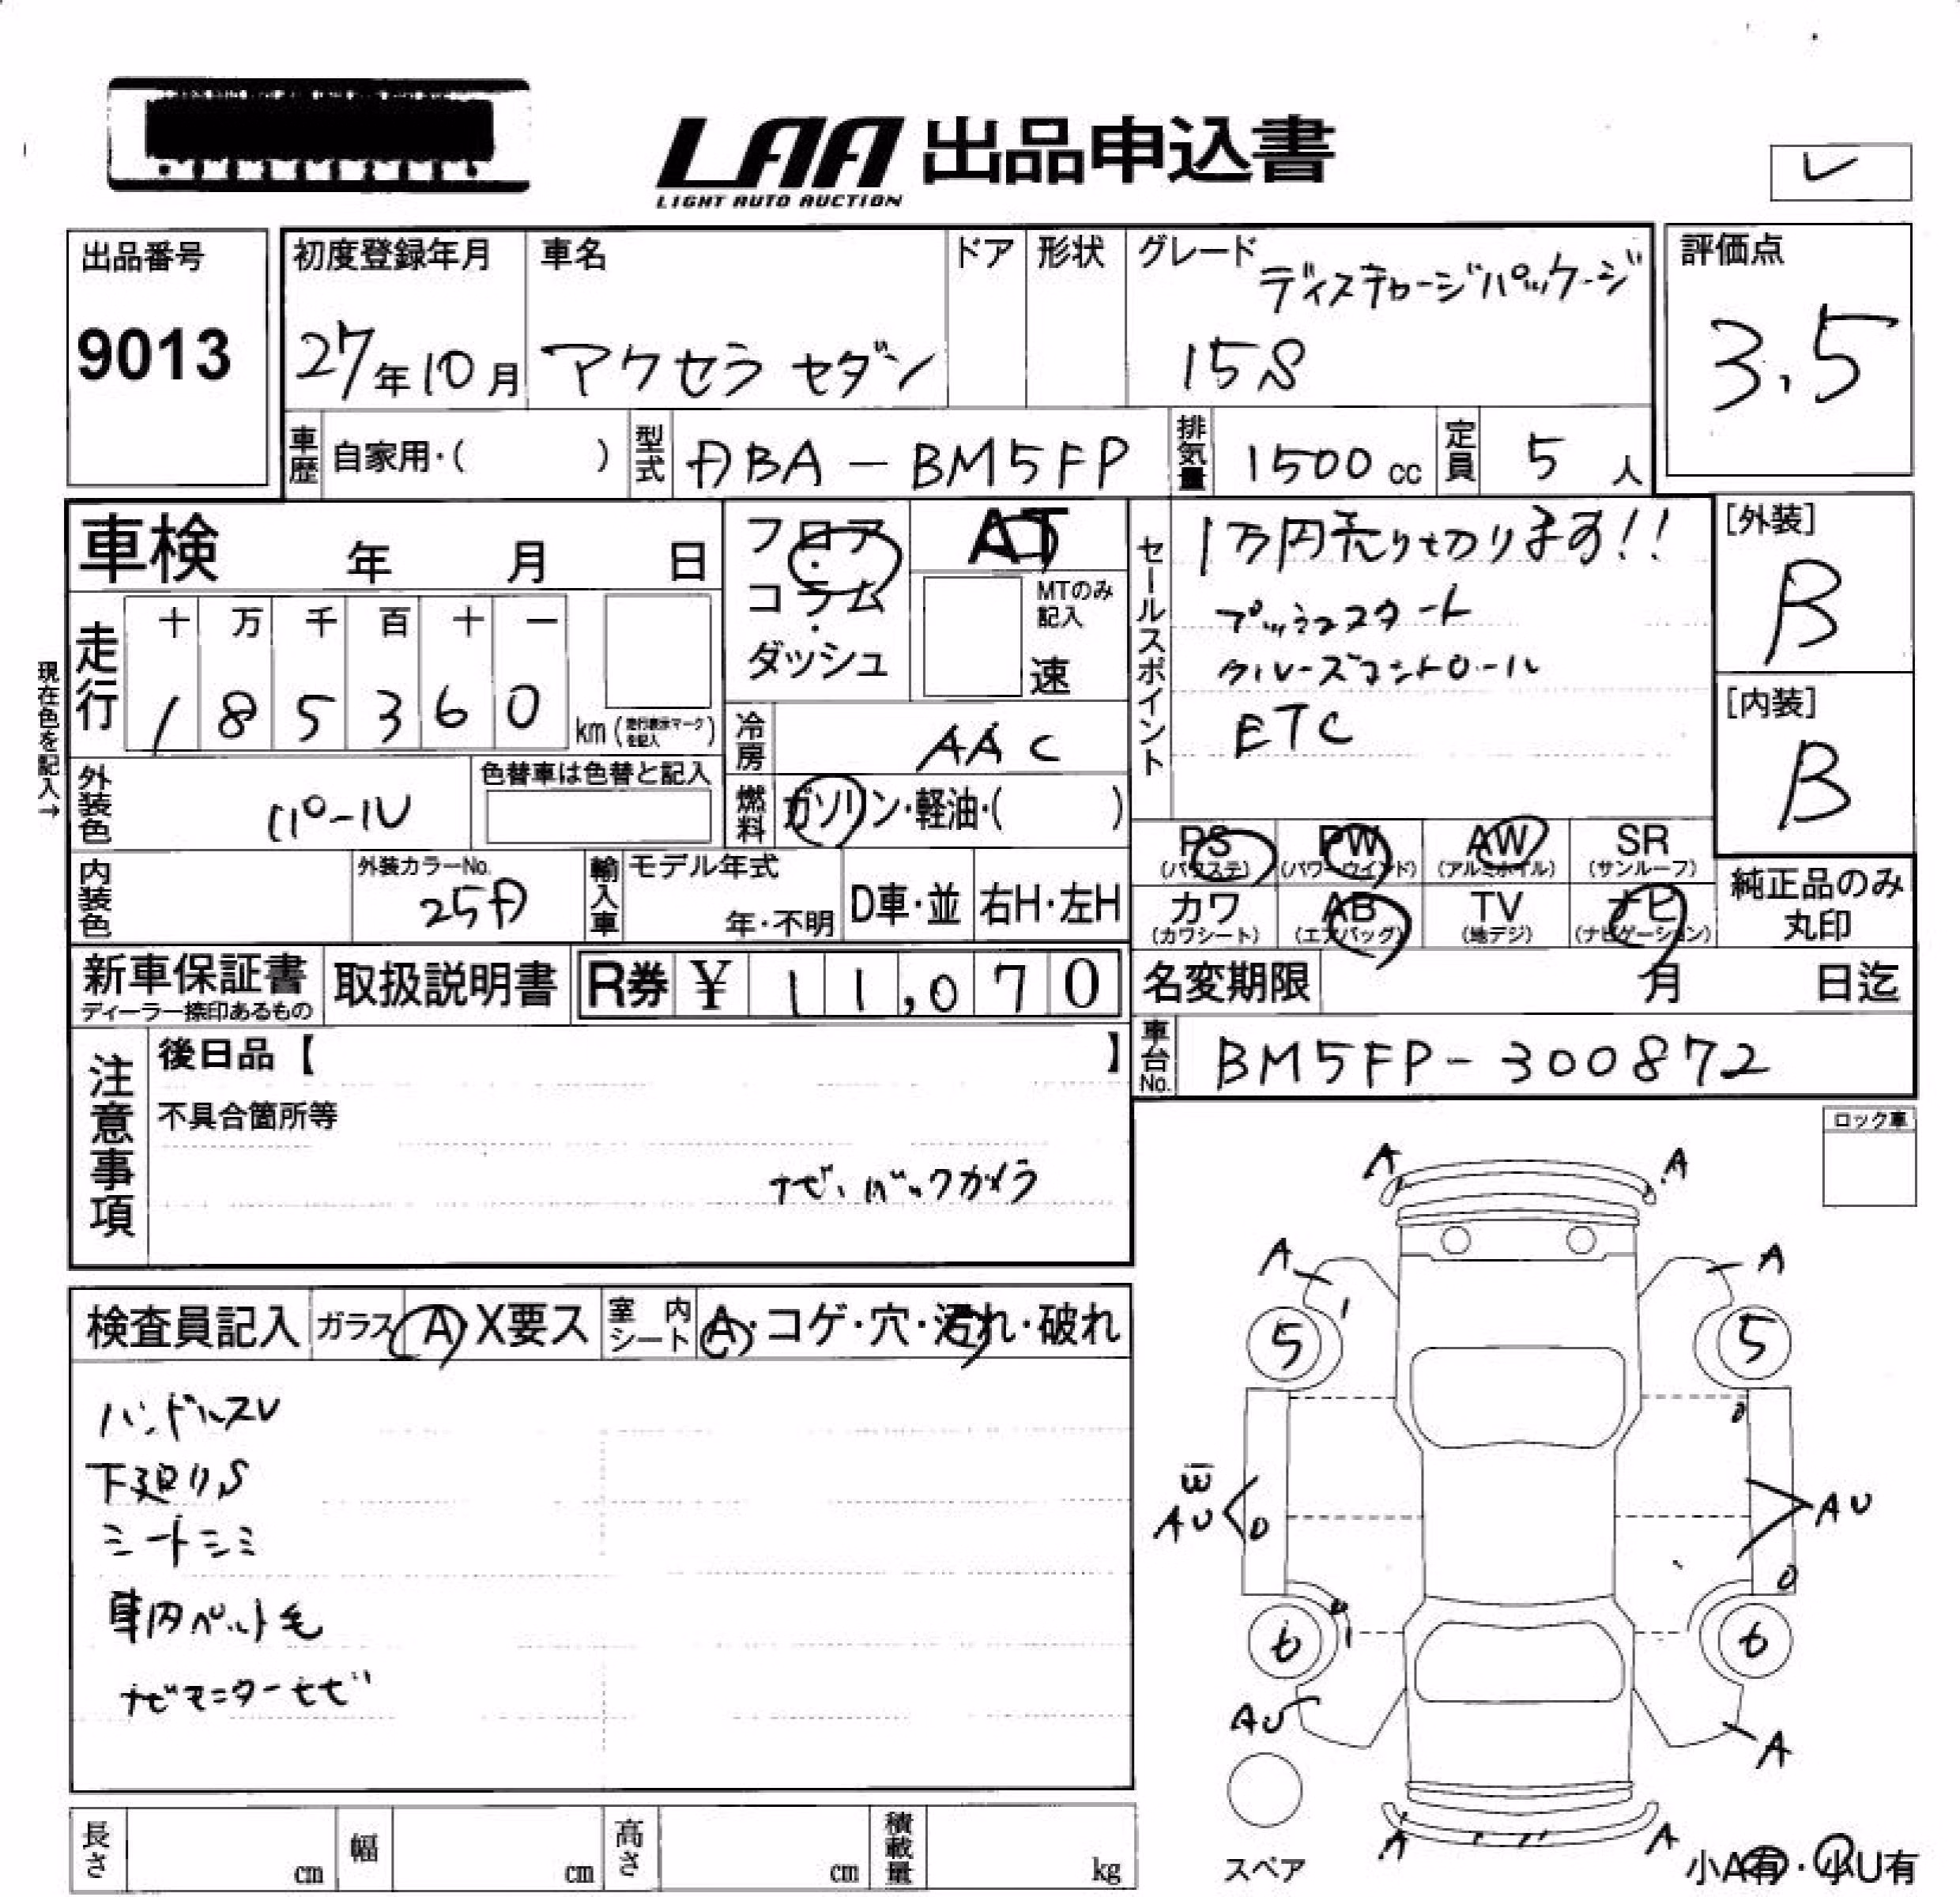 LAA 出品申込書
LIGHT AUTO AUCTION
レ
出品番号
9013
初度登録年月
27年10月
車名
アクセラ セダン
ドア
形状
グレード
ディスチャージパッケージ
15S
評価点
3.5
車歴 自家用・( )
型式 ABA-BM5FP
排気量 1500cc
定員 5人
車検 年 月 日
フロア・コラム・ダッシュ
AT
MTのみ記入
速
セールスポイント
1万円売り切ります!!
プッシュスタート
クルーズコントロール
ETC
[外装]
B
[内装]
B
現在色を記入→
走行
十 万 千 百 十 一
1 8 5 3 6 0
km(走行表示マークを記入)
冷房 AAC
外装色 パール
色替車は色替と記入
燃料 ガソリン・軽油・( )
PS(パワステ) PW(パワーウインド) AW(アルミホイル) SR(サンルーフ)
カワ(カワシート) AB(エアバッグ) TV(地デジ) ナビ(ナビゲーション)
純正品のみ丸印
内装色
外装カラーNo.
25A
輸入車 モデル年式
年・不明
D車・並
右H・左H
新車保証書
ディーラー捺印あるもの
取扱説明書
R券 ¥ 11,070
名変期限 月 日迄
車台No. BM5FP-300872
注意事項
後日品【 】
不具合箇所等
ナビ、バックカメラ
ロック車
検査員記入
ガラス A・X要ス
室内シート A・コゲ・穴・汚れ・破れ
ハンドルスレ
下廻りS
シートシミ
車内ペット毛
A A
A A
5 5
AU AU
6 6
AU A
A A
スペア
小A有・小U有
長さ cm
幅 cm
高さ cm
積載量 kg